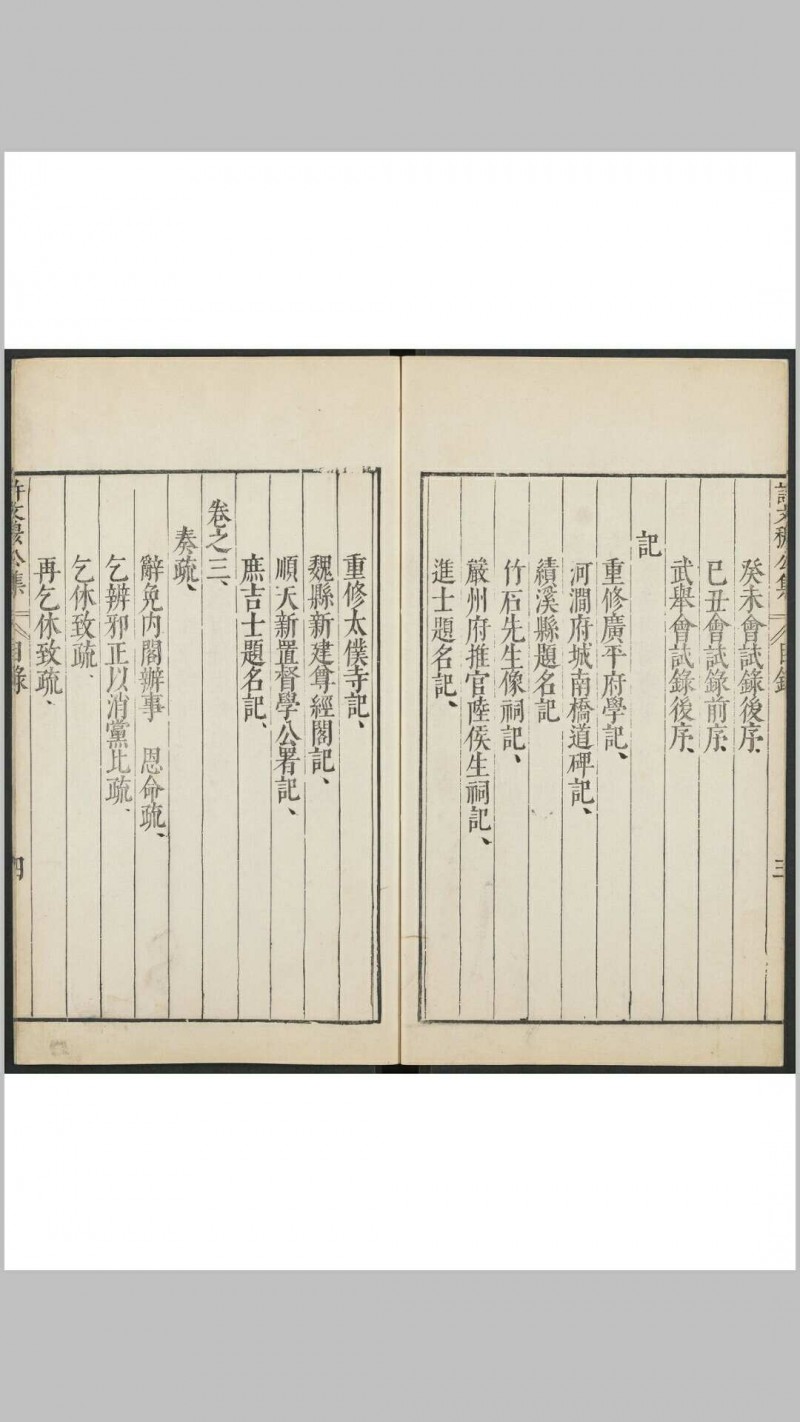 許文穆公集 目錄 三
癸未會試錄後序、
己丑會試錄前序、
武舉會試錄後序、
記
重修廣平府學記、
河澗府城南橋道碑記、
績溪縣題名記
竹石先生像祠記、
嚴州府推官陸侯生祠記、
進士題名記、
重修太僕寺記、
魏縣新建尊經閣記、
順天新置督學公署記、
庶吉士題名記、
卷之三、
奏疏、
辭免內閣辦事 恩命疏、
乞辨邪正以消黨比疏、
乞休致疏、
再乞休致疏、
許文穆公集 目錄 四